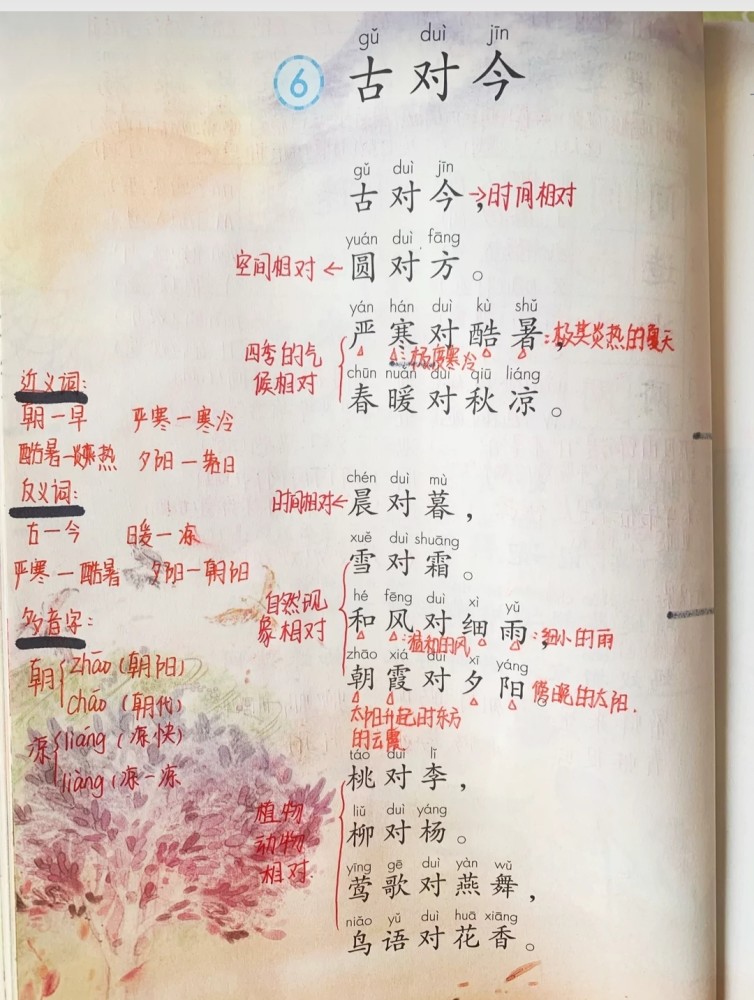 gǔ duì jīn
6 古对今
gǔ duì jīn
古对今，→时间相对
yuán duì fāng
空间相对←圆对方。
yán hán duì kù shǔ
严寒对酷暑，:极其炎热的夏天
:极度寒冷
四季的气
候相对
chūn nuǎn duì qiū liáng
春暖对秋凉。
近义词:
朝—早 严寒—寒冷
酷暑—炎热 夕阳—落日
反义词:
古—今 暖—凉
严寒—酷暑 夕阳—朝阳
多音字:
朝 zhāo(朝阳)
cháo(朝代)
凉 liáng(凉快)
liàng(凉一凉
chén duì mù
时间相对←晨对暮，
xuě duì shuāng
雪对霜。
自然现
象相对
hé fēng duì xì yǔ
和风对细雨，:细小的雨
:温和的风
zhāo xiá duì xī yáng
朝霞对夕阳。傍晚的太阳.
太阳升起时东方
的云霞
táo duì lǐ
桃对李，
liǔ duì yáng
柳对杨。
植物
动物
相对.
yīng gē duì yàn wǔ
莺歌对燕舞，
niǎo yǔ duì huā xiāng
鸟语对花香。